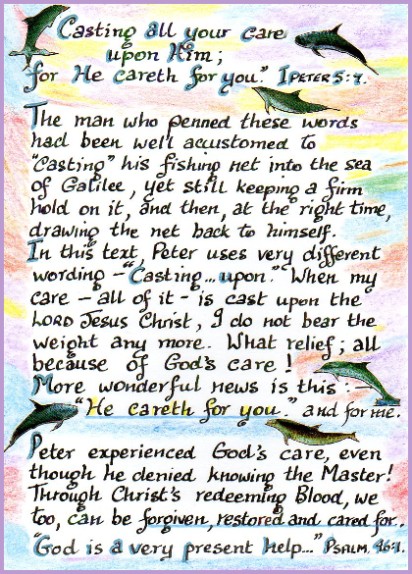 Casting all your care
upon Him;
for He careth for you." I PETER 5:7.
The man who penned these words
had been well accustomed to
"casting" his fishing net into the sea
of Galilee, yet still keeping a firm
hold on it, and then, at the right time,
drawing the net back to himself.
In this text, Peter uses very different
wording – "Casting... upon." When my
care – all of it – is cast upon the
LORD Jesus Christ, I do not bear the
weight any more. What relief; all
because of God's care!
More wonderful news is this :–
"He careth for you." and for me.
Peter experienced God's care, even
though he denied knowing the Master!
Through Christ's redeeming Blood, we
too, can be forgiven, restored and cared for.
"God is a very present help..." PSALM. 46:1.